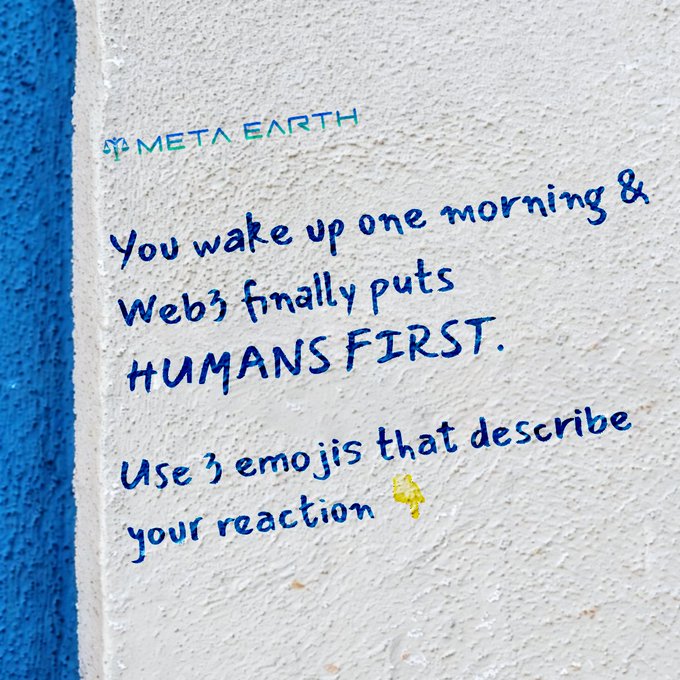 META EARTH
You wake up one morning &
Web3 finally puts
HUMANS FIRST.
Use 3 emojis that describe
your reaction 👇